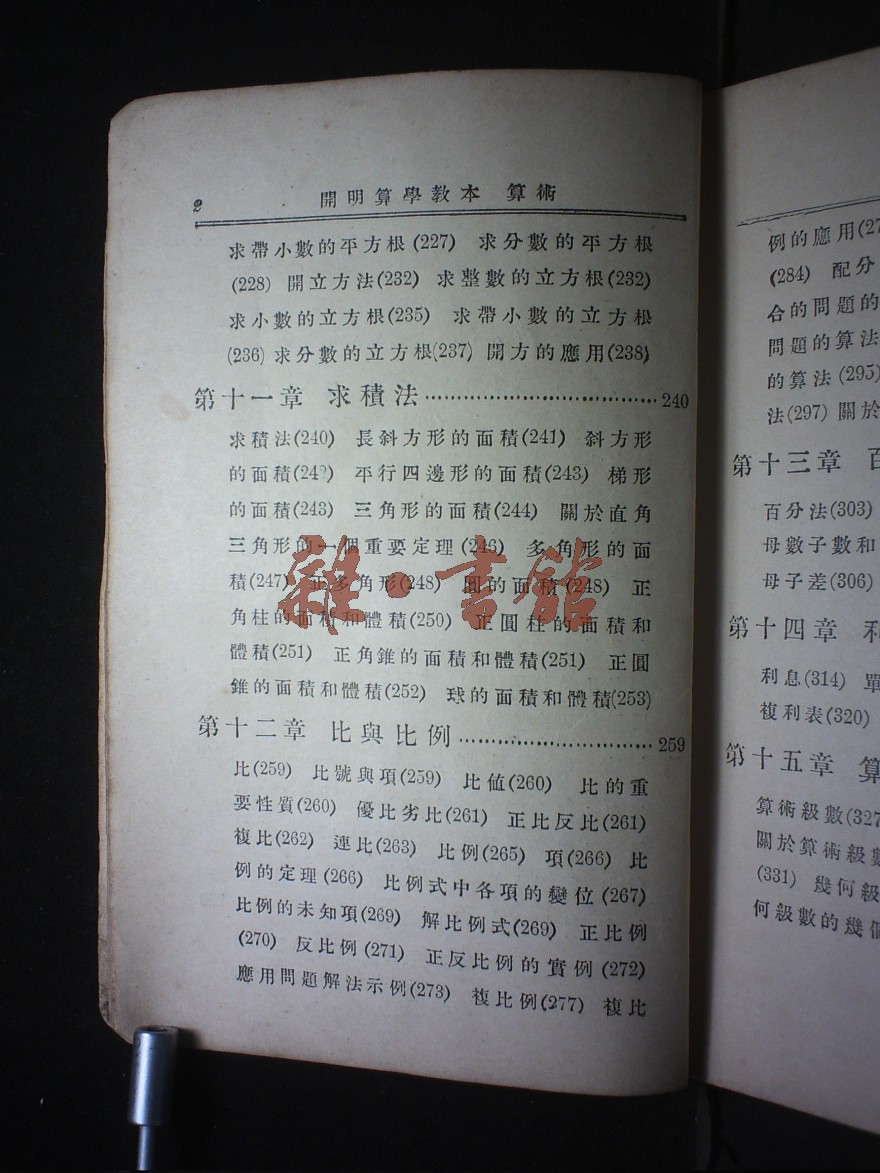 2 開明算學教本 算術
求帶小數的平方根(227) 求分數的平方根
(228) 開立方法(232) 求整數的立方根(232)
求小數的立方根(235) 求帶小數的立方根
(236) 求分數的立方根(237) 開方的應用(238)
第十一章 求積法 240
求積法(240) 長斜方形的面積(241) 斜方形
的面積(242) 平行四邊形的面積(243) 梯形
的面積(243) 三角形的面積(244) 關於直角
三角形的一個重要定理(246) 多角形的面
積(247) 正多角形(248) 圓的面積(248) 正
角柱的面積和體積(250) 正圓柱的面積和
體積(251) 正角錐的面積和體積(251) 正圓
錐的面積和體積(252) 球的面積和體積(253)
第十二章 比與比例 259
比(259) 比號與項(259) 比値(260) 比的重
要性質(260) 優比劣比(261) 正比反比(261)
複比(262) 連比(263) 比例(265) 項(266) 比
例的定理(266) 比例式中各項的變位(267)
比例的未知項(269) 解比例式(269) 正比例
(270) 反比例(271) 正反比例的實例(272)
應用問題解法示例(273) 複比例(277) 複比
雜·書館
例的應用(27
(284) 配分
合的問題的
問題的算法
的算法(295)
法(297) 關於
第十三章 百
百分法(303)
母數子數和
母子差(306)
第十四章 利
利息(314) 單
複利表(320)
第十五章 算
算術級數(327
關於算術級數
(331) 幾何級
何級數的幾個